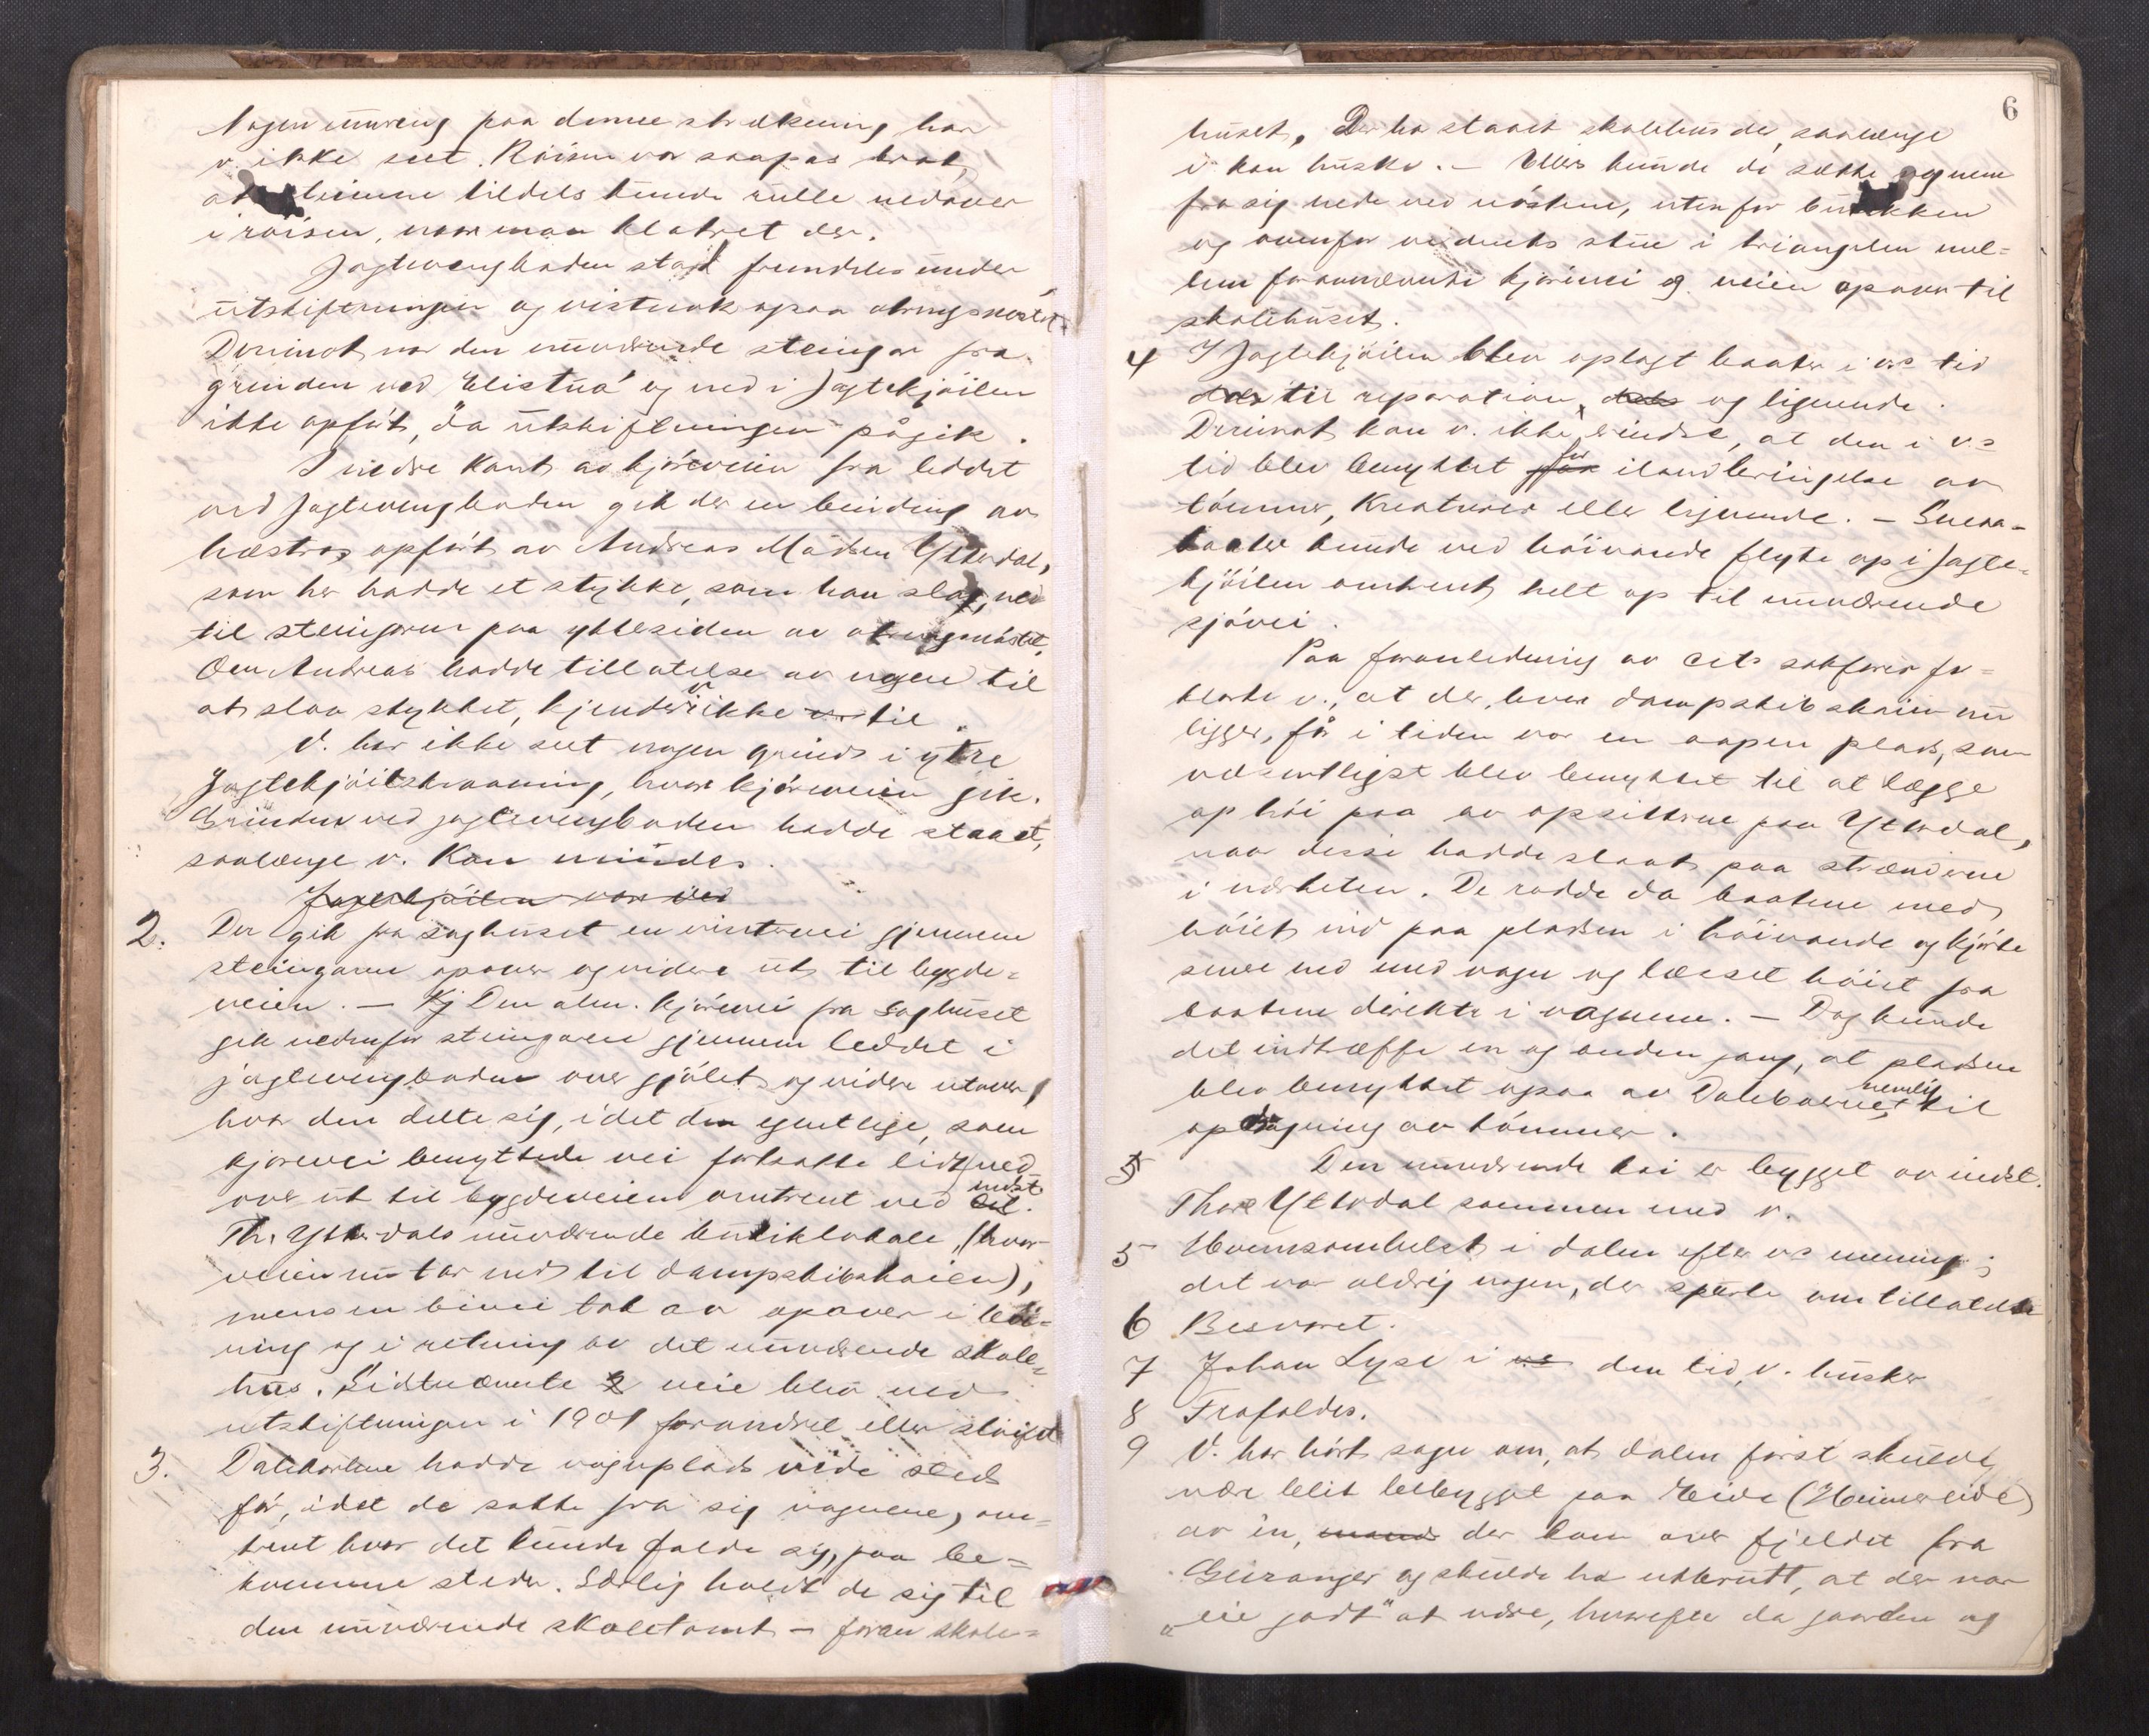 Nogen muring paa denne strækning har
v. ikke seet. Röisen var saapas brat,
at stenene tildels kunde rulle nedover
i röisen, naar man klatret der.
Jagtevengboden stod fremdeles under
utskiftningen og vistnok ogsaa
Derimot var den nuværende steingar fra
grinden ved "Elistua" og ned i Jagtekjöilen
ikke opfört, da utskiftningen pågik.
I nedre kant av kjöreveien fra leddet
ved Jagtevengboden gik der en beiding av
hæstras opfört av Andreas Madsen Ytterdal,
som her hadde et stykke, som han slog, ned
til steingaren paa yttesiden av
Om Andreas hadde tillatelse av nogen til
at slaa stykket, kjender v. ikke til.
V. har ikke seet nogen grind i ytre
Jagtekjöilskraaning, hvor kjöreveien gik.
Grinden ved jagtevengboden hadde staaet,
saalænge v. kan mindes.
Jagtekjöilen var ved
2. Der gik fra saghuset en vintervei gjennem
steingaren opover og videre ut til bygde=
veien. — Kj Den alm. kjörevei fra saghuset
gik nedenfor steingaren gjennem leddet i
jagtevengboden over gjölet og videre utover,
hvor den delte sig, idet den egentlige, som
kjörevei benyttede vei fortsatte lidt ned=
over ut til bygdeveien omtrent ved indst.
Th. Ytterdals nuværende butiklokale, (hvor
veien nu tar ned til dampskibskaien),
mens en bivei tok av opover i
ning og i retning av det nuværende skole=
hus. Sidstnævnte 2 veie blev ved
utskiftningen i 1901 forandret eller slöifet
3. Dalebörene hadde vognplads vide sted
för, idet de satte fra sig vognene, om=
trent hvor det kunde falde sig, paa be=
kvemme steder. Særlig holdt de sig til
den nuværende skoletomt — foran skole=
6
huset. Der ha staaet skolehus der, saalænge
v. kan huske. — Ellers kunde de sætte vognene
fra sig nede ved nöstene, utenfor butikken
og ovenfor veidrets stue i triangelen mel=
lem forannævnte kjörevei og veien opover til
skolehuset.
4 I Jagtekjöilen blev oplagt baater i v.s tid
dels til reparation, dels og lignende.
Derimot kan v. ikke erindre, at den i v.s
tid blev benyttet for til ilandbringelse av
tömmer, kreaturer eller lignende. — Smaa=
baater kunde ved höivande flyte op i Jagte=
kjöilen omtrent helt op til nuværende
sjövei.
Paa foranledning av cit.s sakförer for=
klarte v., at der, hvor dampskibskaien nu
ligger, för i tiden var en aapen plads, som
væsentligst blev benyttet til at lægge
op höi paa av opsitterne paa Ytterdal,
naar disse hadde slaat paa strændene
i nærheten. De rodde da baatene med
höiet ind paa pladsen i höivande og kjörte
senere ned med vogn og læsset höiet fra
baatene direkte i vognene. — Dog kunde
det indtræffe en og anden gang, at pladsen
blev benyttet ogsaa av Dalebörene, nemlig til
opdragning av tömmer.
5 Den nuværende kai er bygget av indst.
Thore Ytterdal sammen med v.
5 Hvemsomhelst i dalen efter v.s mening;
det var aldrig nogen, der spurte om tillatelse
6 Besvaret.
7 Johan Lyse i v.s den tid, v. husker
8 Frafaldes.
9 V. har hört sagn om, at dalen först skulde
være blit bebygget paa Eide (Heimereide)
av en, mand der kom over fjeldet fra
Geiranger og skulde ha utbrutt, at der var
"eie godt" at være, hvorefter da gaarden og